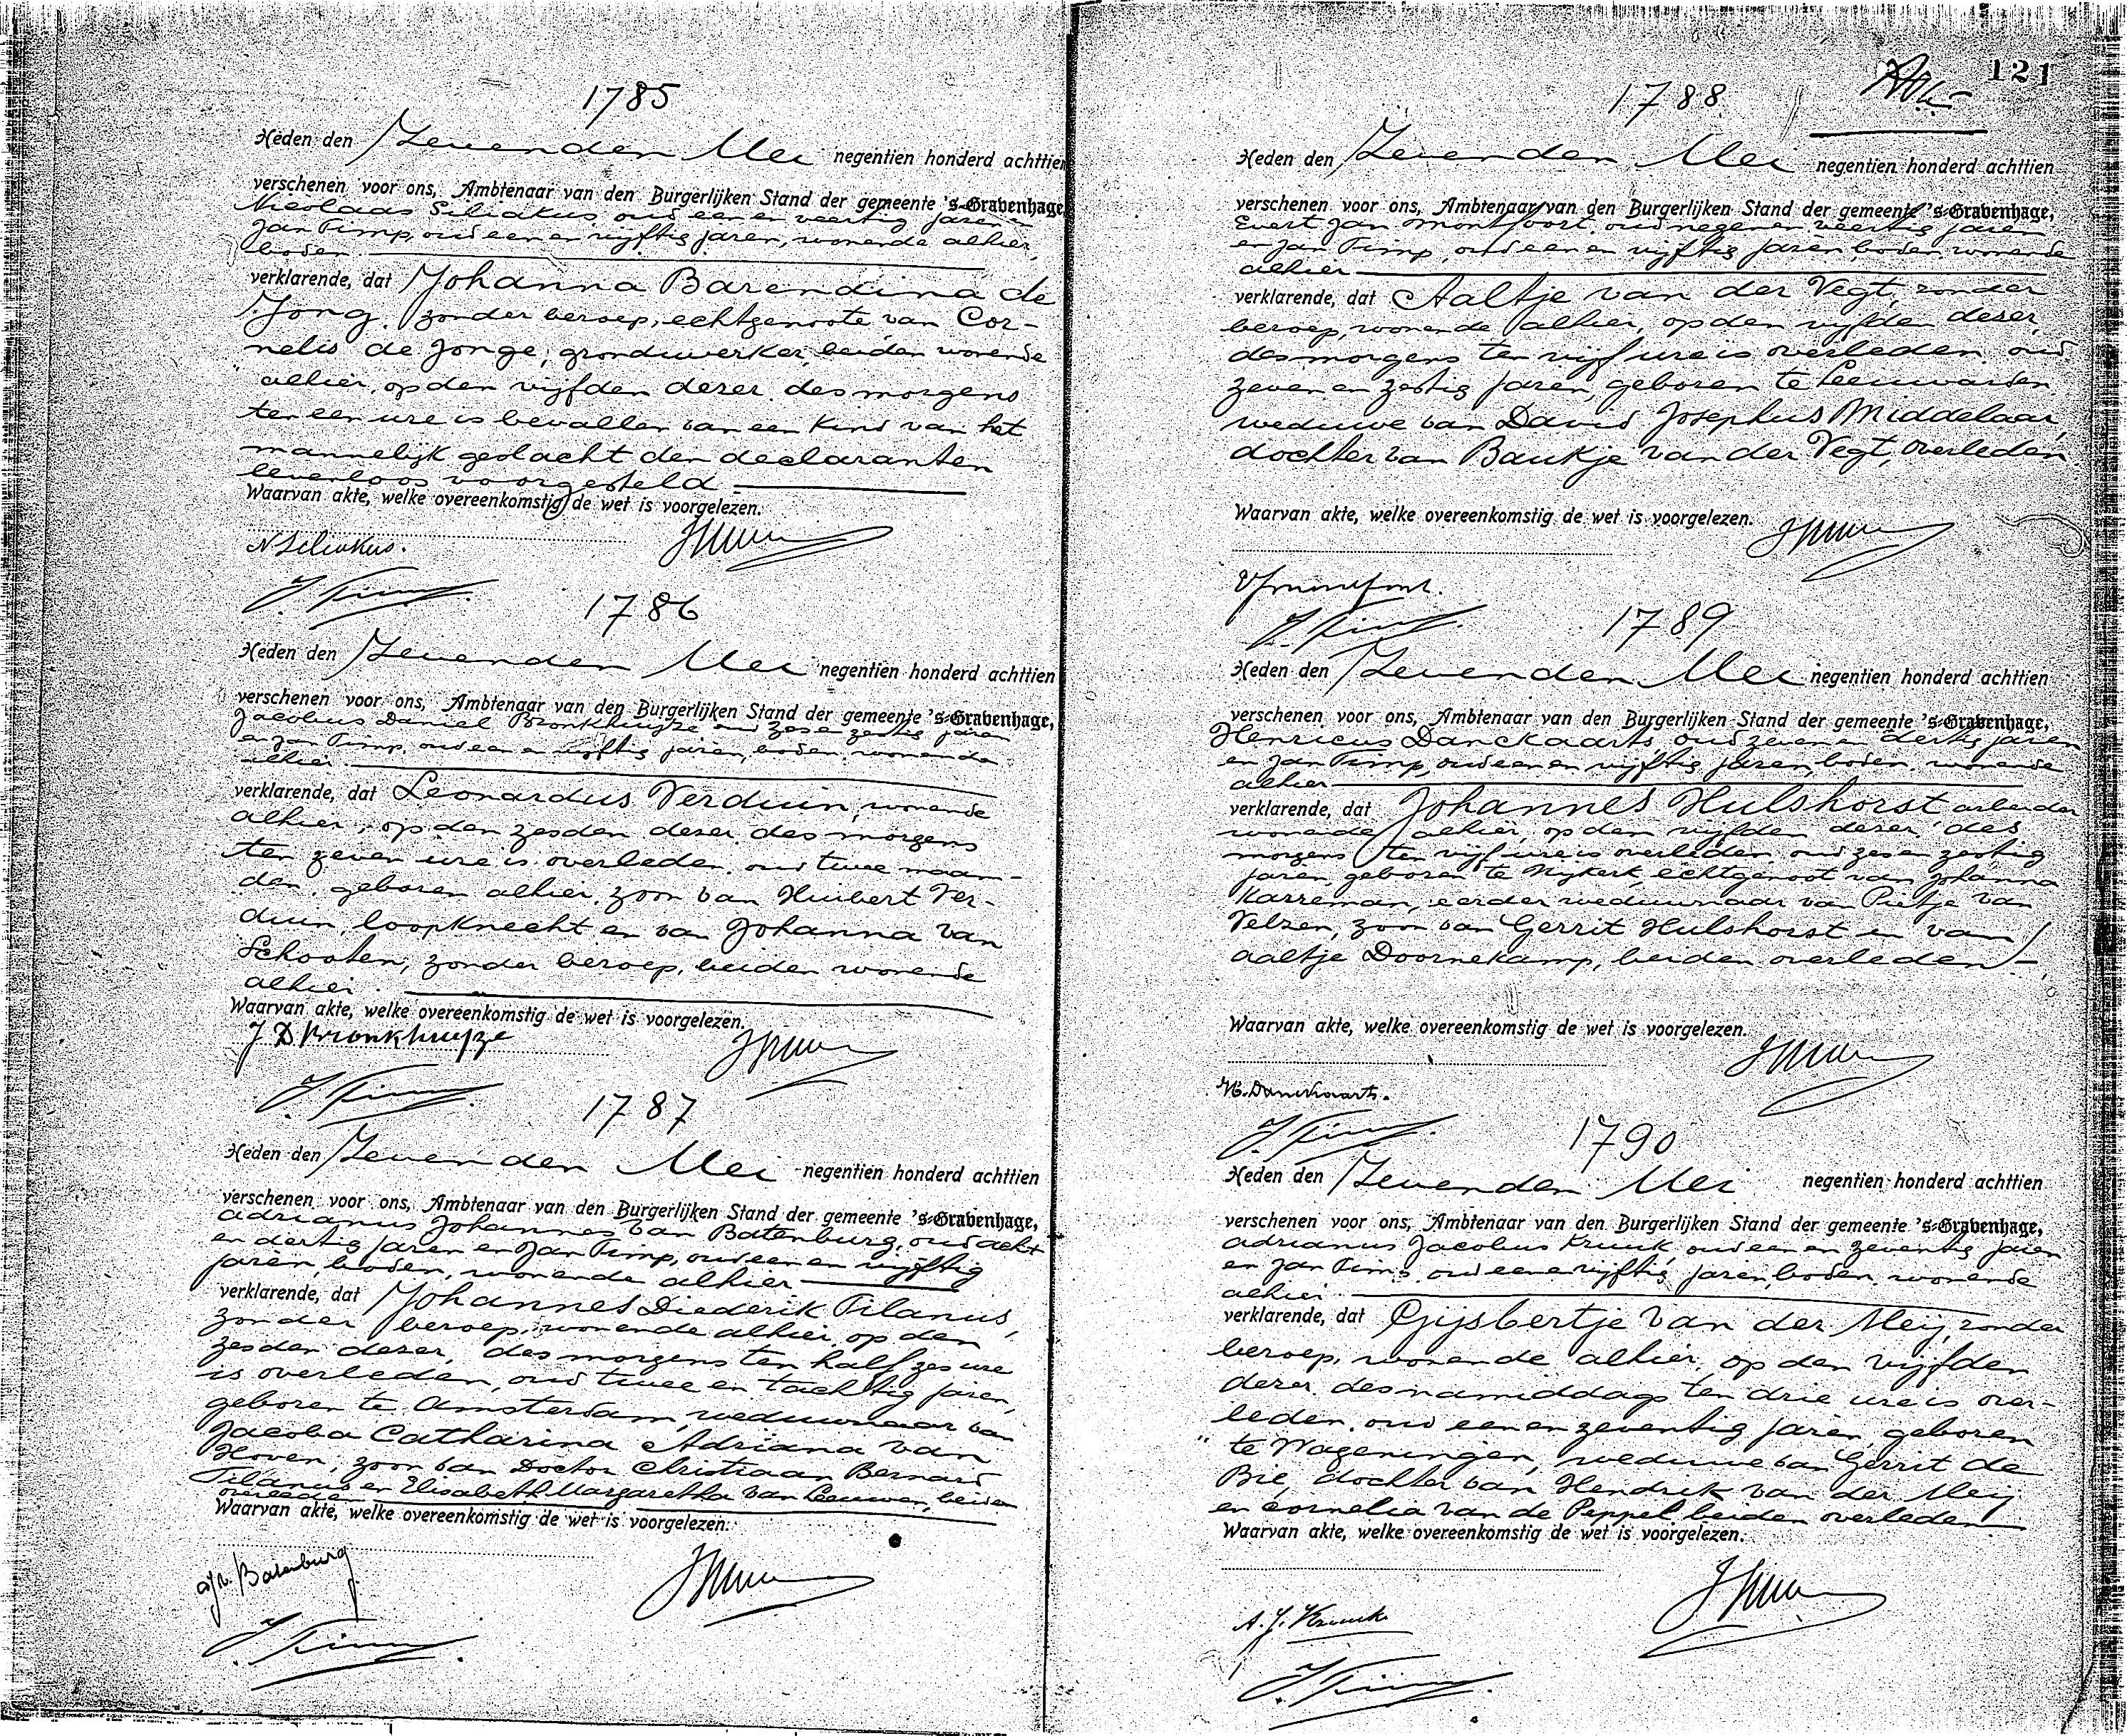 1785
Heden den Zevenden Mei negentien honderd achttien
verschenen voor ons, Ambtenaar van den Burgerlijken Stand der gemeente 's-Gravenhage,
Nicolaas Siliakus, oud een en veertig jaren en
Jan Timp, oud een en vijftig jaren, wonende alhier,
boden
verklarende, dat Johanna Barendina de
Jong, zonder beroep, echtgenoote van Cor-
nelis de Jonge, grondwerker, beiden wonende
alhier, op den vijfden dezer des morgens
ten een ure is bevallen van een kind van het
mannelijk geslacht den declaranten
levenloos voorgesteld
Waarvan akte, welke overeenkomstig de wet is voorgelezen.
N Siliakus.
J. Timp
1786
Heden den Zevenden Mei negentien honderd achttien
verschenen voor ons, Ambtenaar van den Burgerlijken Stand der gemeente 's-Gravenhage,
Jacobus Daniel Bronkhuyze oud zes en zestig jaren
en Jan Timp, oud een en vijftig jaren, boden, wonende
alhier
verklarende, dat Leonardus Verduin, wonende
alhier, op den zesden dezer des morgens
ten zeven ure is overleden, oud twee maan-
den, geboren alhier, zoon van Huibert Ver-
duin, loopknecht en van Johanna van
Schooten, zonder beroep, beiden wonende
alhier.
Waarvan akte, welke overeenkomstig de wet is voorgelezen.
J D Bronkhuyze
J. Timp
1787
Heden den Zevenden Mei negentien honderd achttien
verschenen voor ons, Ambtenaar van den Burgerlijken Stand der gemeente 's-Gravenhage,
Adrianus Johannes van Batenburg, oud acht
en dertig jaren en Jan Timp, oud een en vijftig
jaren, boden, wonende alhier
verklarende, dat Johannes Diederik Tilanus,
zonder beroep, wonende alhier, op den
zesden dezer, des morgens ten half zes ure
is overleden, oud twee en tachtig jaren,
geboren te Amsterdam, weduwnaar van
Jacoba Catharina Adriana van
Hoven, zoon van Doctor Christiaan Bernard
Tilanus en Elisabeth Margaretha van Leeuwen, beiden
overleden
Waarvan akte, welke overeenkomstig de wet is voorgelezen.
AJv. Batenburg
J. Timp
121
1788
Heden den Zevenden Mei negentien honderd achttien
verschenen voor ons, Ambtenaar van den Burgerlijken Stand der gemeente 's-Gravenhage,
Evert Jan Montfoort, oud negen en veertig jaren
en Jan Timp, oud een en vijftig jaren, boden, wonende
alhier
verklarende, dat Aaltje van der Vegt, zonder
beroep, wonende alhier, op den vijfden dezer,
des morgens ten vijf ure is overleden, oud
zeven en zestig jaren, geboren te Leeuwarden
weduwe van David Josephus Middelaar,
dochter van Baukje van der Vegt, overleden
Waarvan akte, welke overeenkomstig de wet is voorgelezen.
J. Timp
1789
Heden den Zevenden Mei negentien honderd achttien
verschenen voor ons, Ambtenaar van den Burgerlijken Stand der gemeente 's-Gravenhage,
Henricus Danckaarts, oud zeven en dertig jaren
en Jan Timp, oud een en vijftig jaren, boden, wonende
alhier
verklarende, dat Johannes Hulshorst, arbeider
wonende alhier, op den vijfden dezer, des
morgens ten vijf ure is overleden, oud zes en zestig
jaren, geboren te Nykerk, echtgenoot van Johanna
Karreman, eerder weduwnaar van Pietje van
Velzen, zoon van Gerrit Hulshorst en van
Aaltje Doornekamp, beiden overleden
Waarvan akte, welke overeenkomstig de wet is voorgelezen.
H. Danckaarts.
J. Timp
1790
Heden den Zevenden Mei negentien honderd achttien
verschenen voor ons, Ambtenaar van den Burgerlijken Stand der gemeente 's-Gravenhage,
Adrianus Jacobus Kruuk, oud een en zeventig jaren
en Jan Timp, oud een en vijftig jaren, boden, wonende
alhier
verklarende, dat Gijsbertje van der Meij, zonder
beroep, wonende alhier, op den vijfden
dezer des namiddags ten drie ure is over-
leden, oud een en zeventig jaren, geboren
te Wageningen, weduwe van Gerrit de
Bie, dochter van Hendrik van der Meij
en Cornelia van de Peppel beiden overleden
Waarvan akte, welke overeenkomstig de wet is voorgelezen.
J. Timp